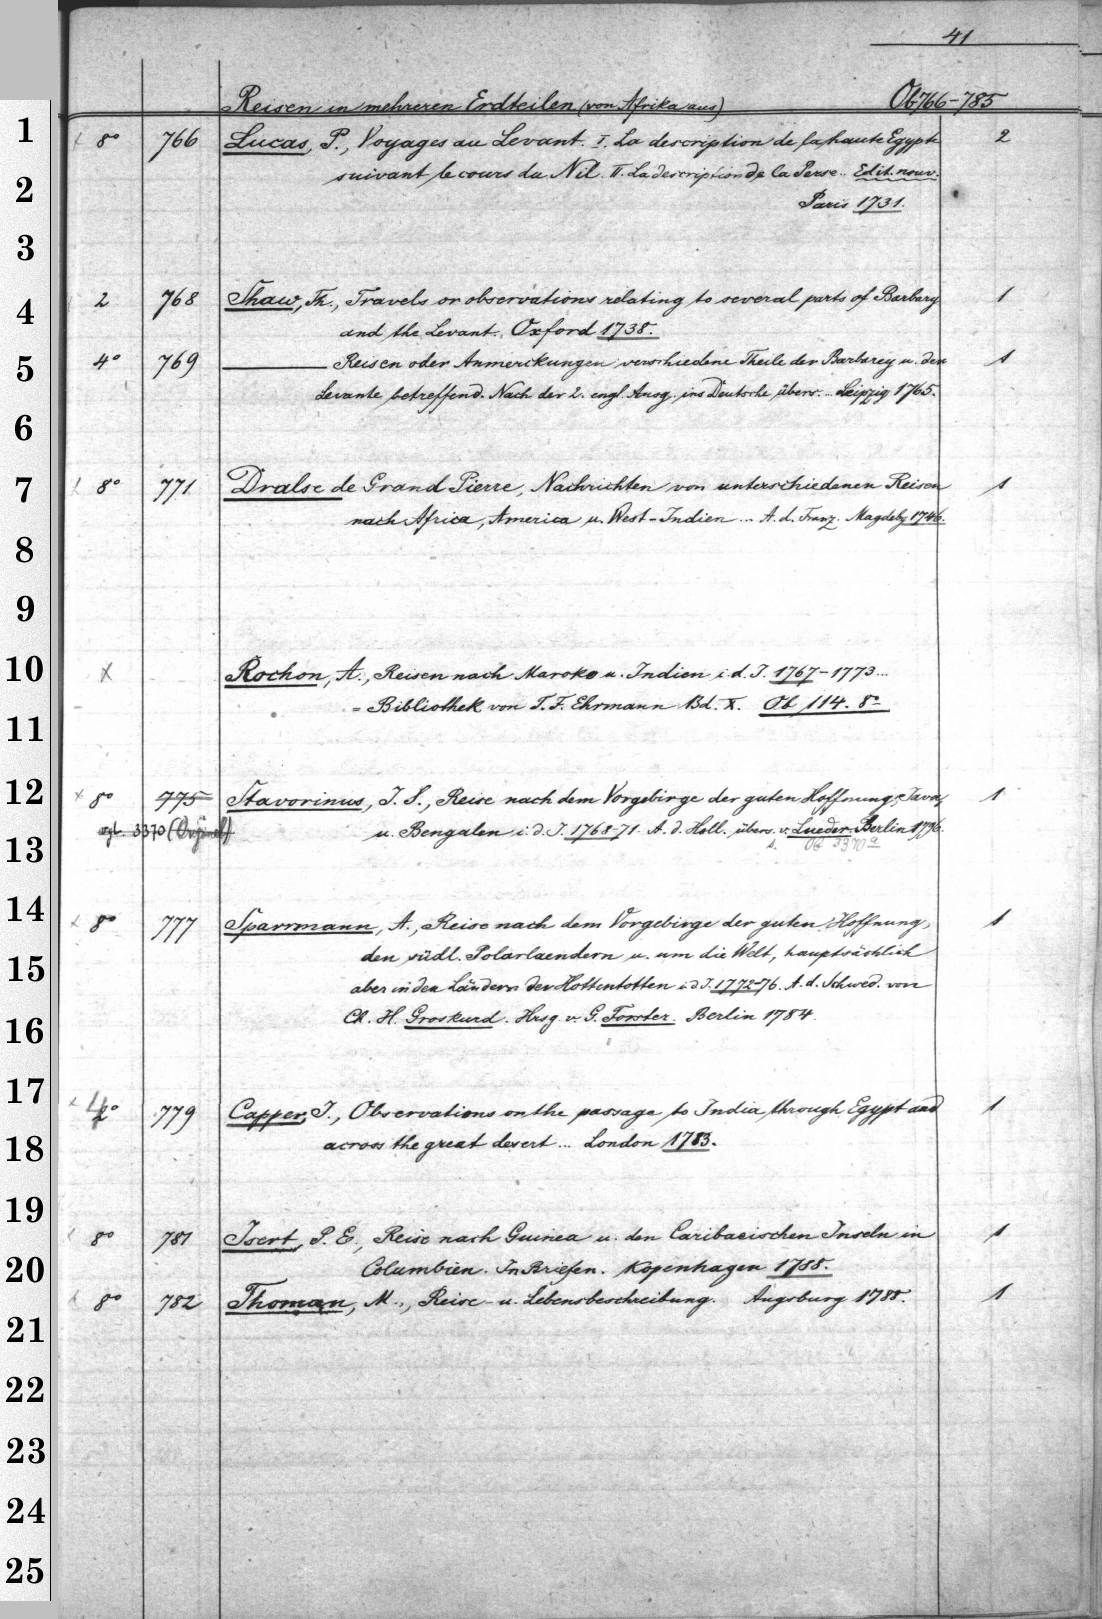 41
Reisen in mehreren Erdteilen (von Afrika aus) Ob 766-785
1 8° 766 Lucas, P., Voyages au Levant. I. La description de la haute Egypte 2
2 suivant le cours du Nil. II. La description de la Perse.. Edit. nouv.
Paris 1731.
3
4 2 768 Shaw, Th., Travels or observations relating to several parts of Barbary 1
and the Levant. Oxford 1738.
5 4° 769 ——— Reisen oder Anmerckungen verschiedene Theile der Barbarey u. der 1
Levante betreffend. Nach der 2. engl. Ausg. ins Deutsche übers. .. Leipzig 1765.
6
7 8° 771 Dralse de Grand Pierre, Nachrichten von unterschiedenen Reisen 1
nach Africa, America u. West-Indien ... A. d. Franz. Magdebg 1746.
8
9
10 x Rochon, A., Reisen nach Maroko u. Indien i. d. J. 1767-1773...
11 = Bibliothek von T. F. Ehrmann Bd. X. Ob 114. 8°
12 x 8° 775 Stavorinus, J. S., Reise nach dem Vorgebirge der guten Hoffnung, Java, 1
vgl. 3370 (Original) u. Bengalen i. d. J. 1768-71. A. d. Holl. übers. v. Lueder. Berlin 1796.
13 s. Ob 3370 a
14 8° 777 Sparrmann, A., Reise nach dem Vorgebirge der guten Hoffnung, 1
15 den südl. Polarlaendern u. um die Welt, hauptsächlich
aber in den Ländern der Hottentotten i. d. J. 1772-76. A. d. Schwed. von
16 Ch. H. Groskurd. Hrsg. v. G. Forster. Berlin 1784.
17 4° 779 Capper, J., Observations on the passage to India through Egypt and 1
18 across the great desert ... London 1783.
19 8° 781 Isert, P. E., Reise nach Guinea u. den Caribaeischen Inseln in 1
20 Columbien. In Briefen. Kopenhagen 1788.
8° 782 Thoman, M., Reise- u. Lebensbeschreibung. Augsburg 1788. 1
21
22
23
24
25